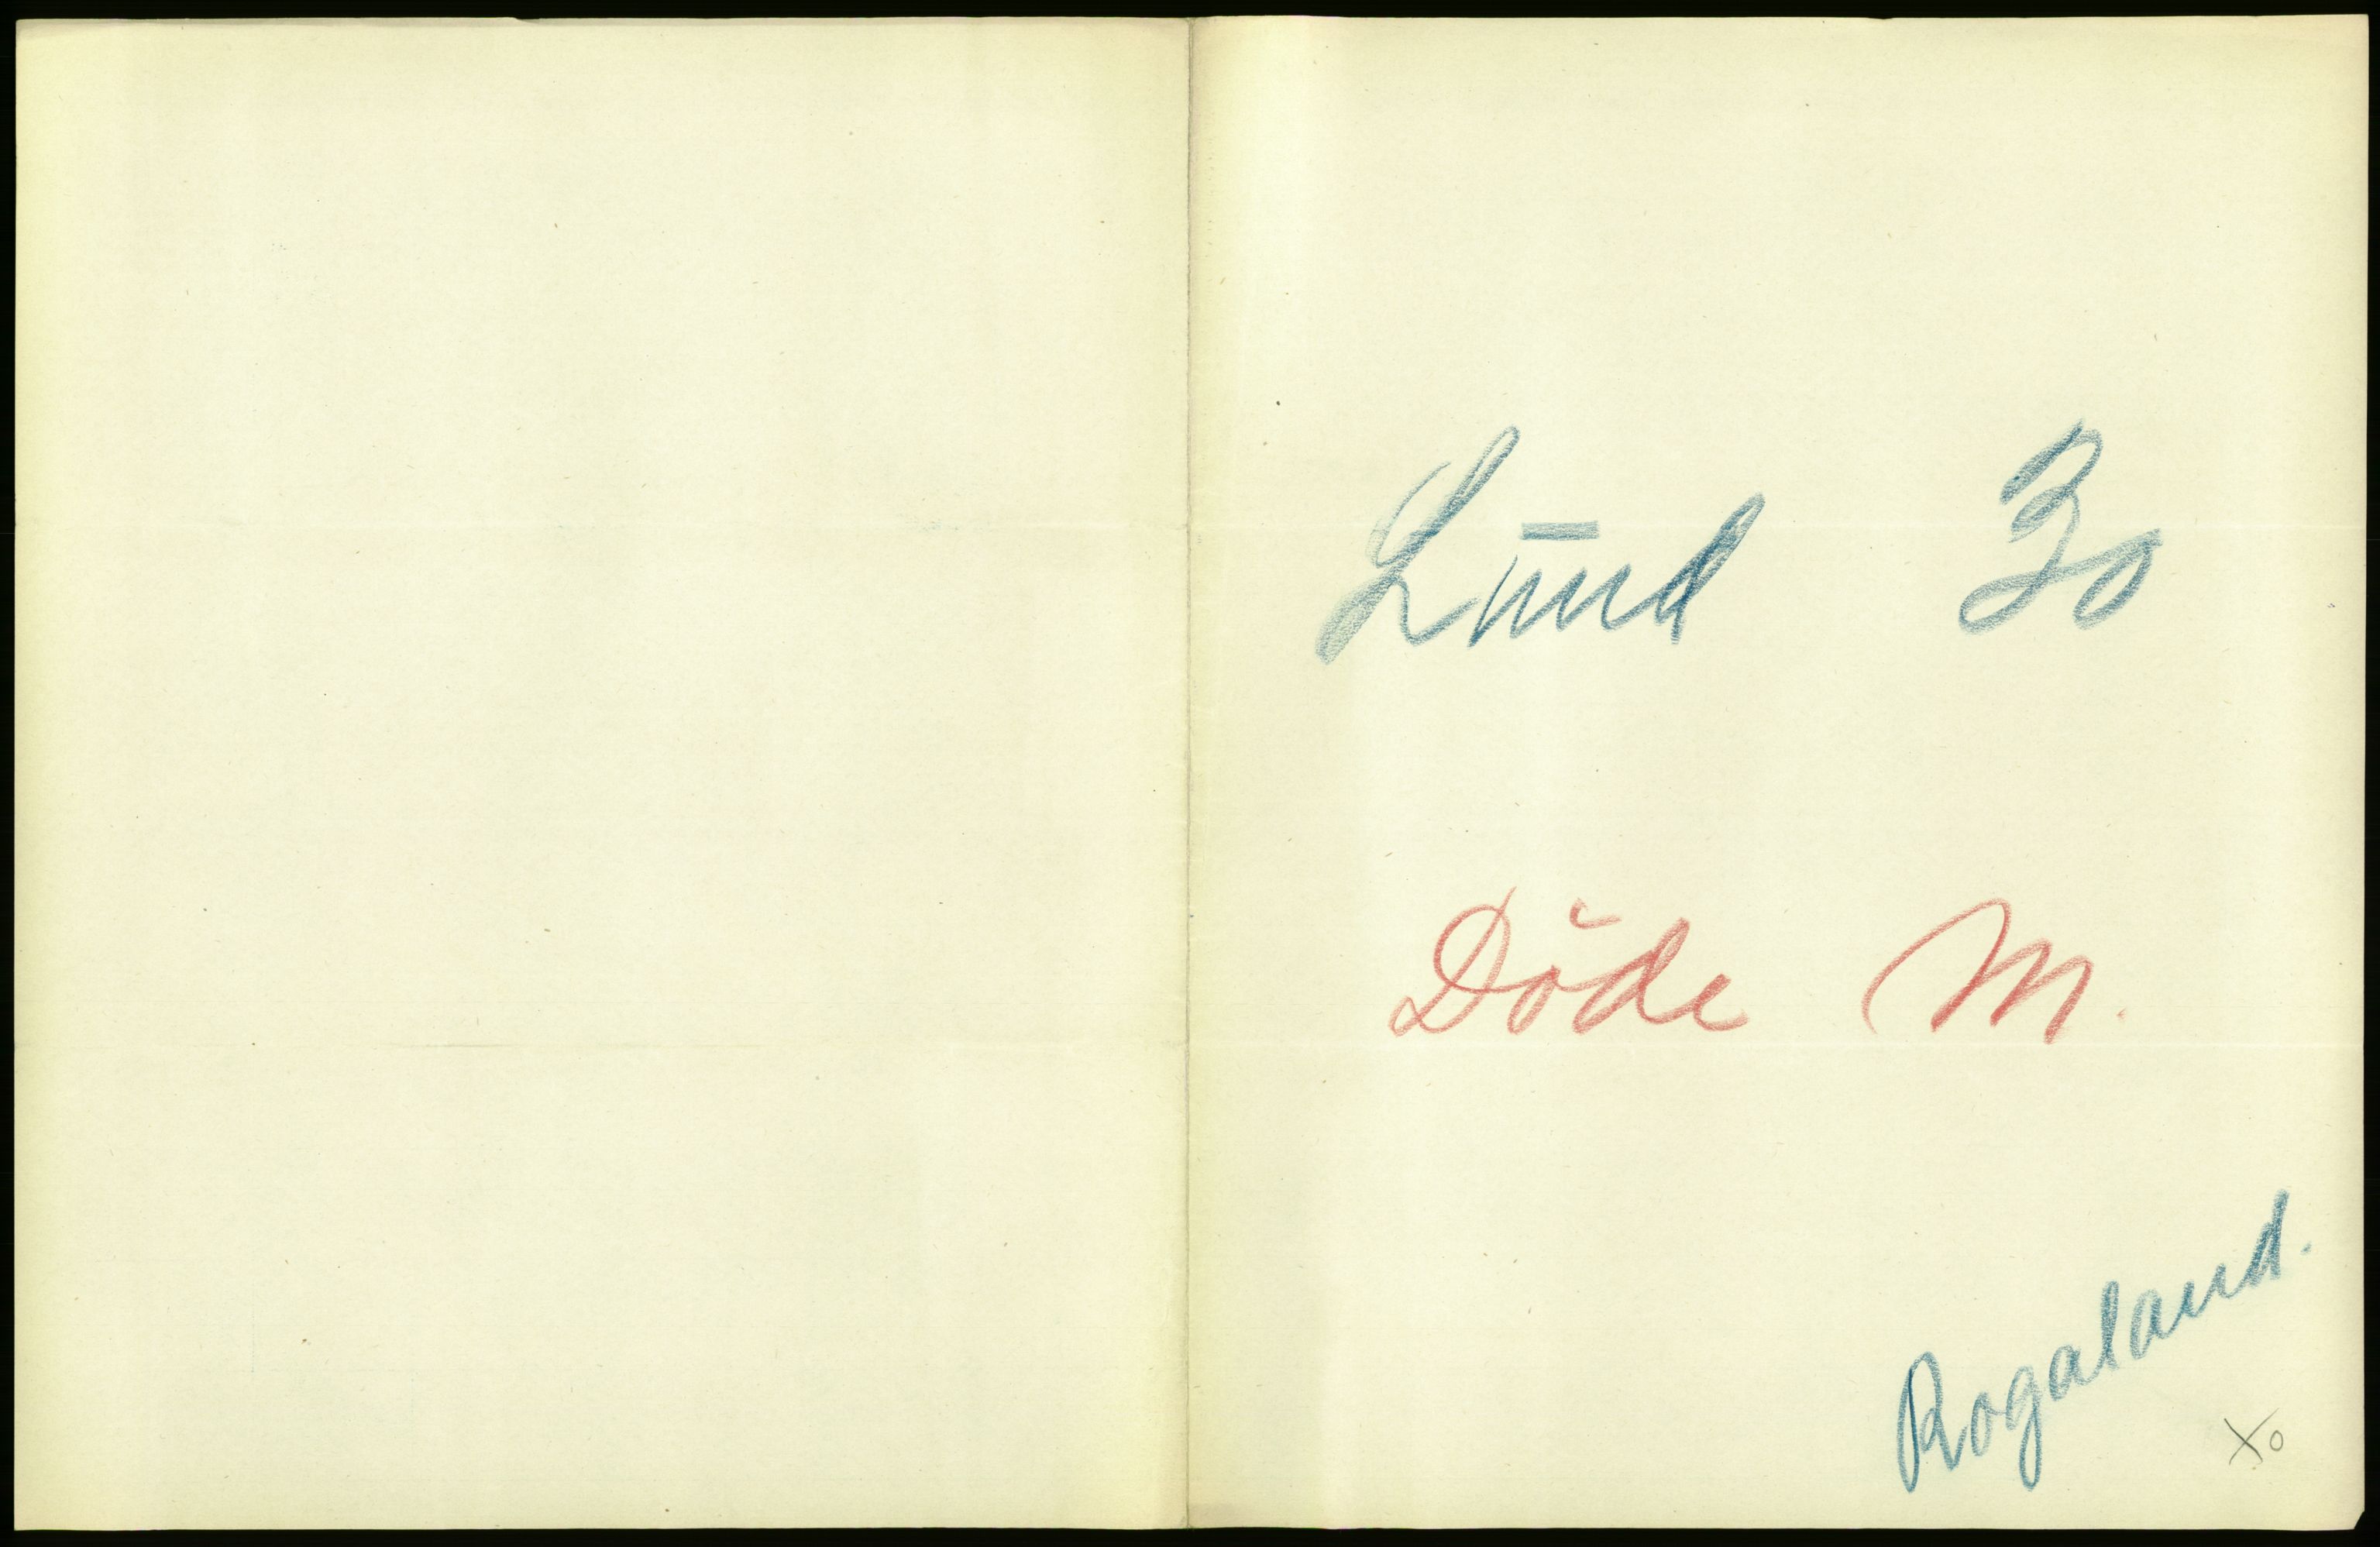 Lund 30
Döde M.
Rogaland.
Xo